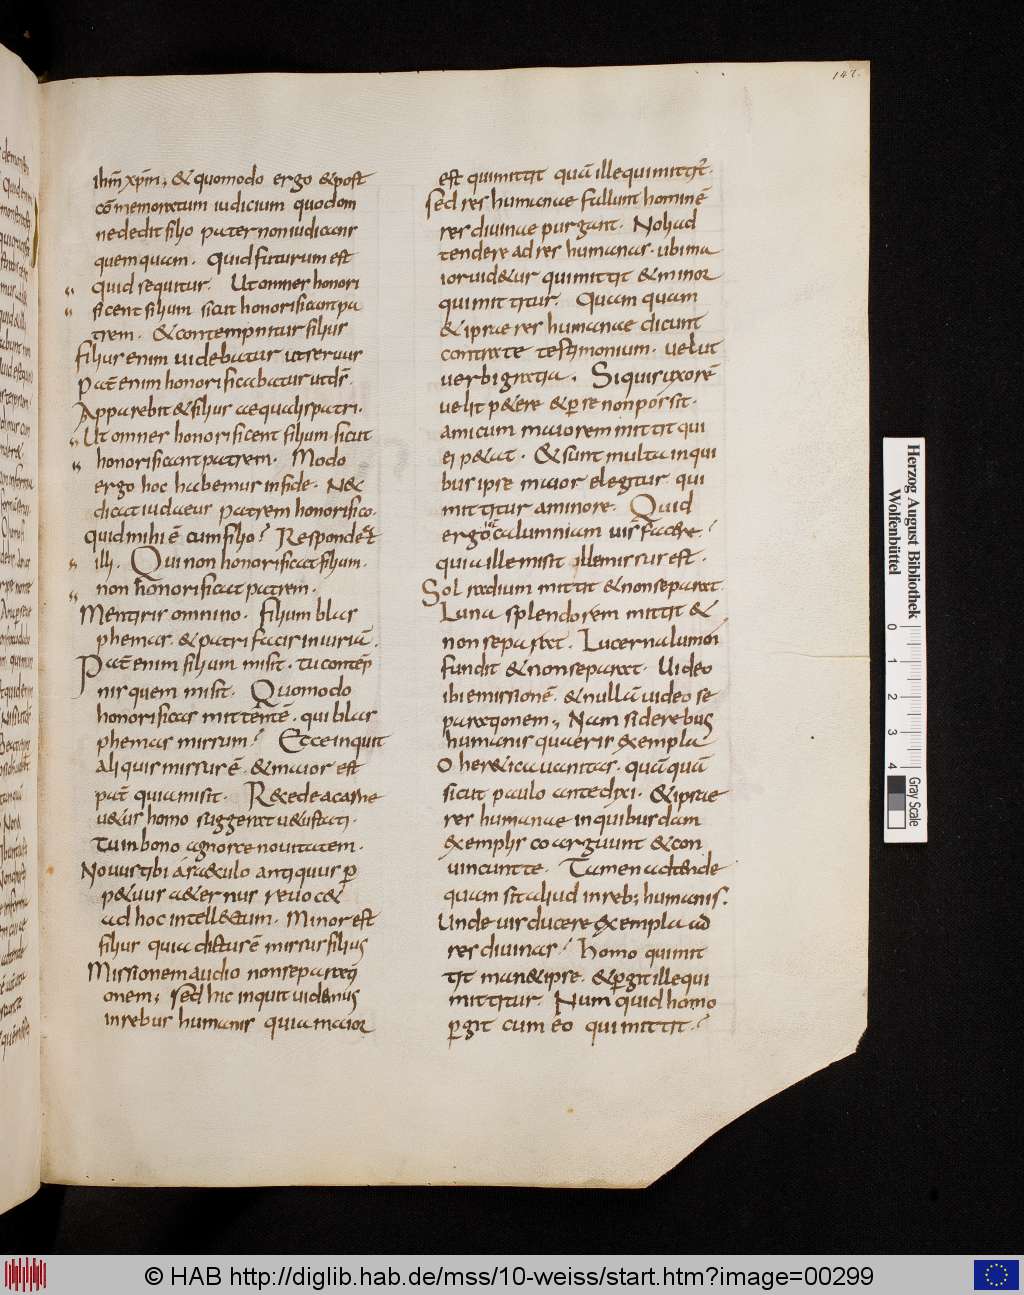 147.
ihm̅ xpm̅; & quomodo ergo & post
co̅memoratum iudicium quodam
ne dedit filio pater non iudicans
quemquam. Quid futurum est
quid sequitur. Ut omnes honori
ficent filium sicut honorificant pa
trem. & contemnitur filius
filius enim uidebatur ut seruus
Pat̅ enim honorificabatur ut d̅s.
Apparebit & filius aequalis patri.
Ut omnes honorificent filium sicut
honorificant patrem. Modo
ergo hoc habemus in fide. N&
dicat iudaeus patrem honorifico.
quid mihi e̅ cum filio? Respondetet
illi. Qui non honorificat filium.
non honorificat patrem.
Mentiris omnino. filium blas
phemas. & patri facis iniuria̅.
Pat̅ enim filium misit. tu conte̅p
nis quem misit. Quomodo
honorificas mittente̅. qui blas
phemas missum? Ecce inquit
aliquis missus e̅. & maior est
pat̅ quia misit. Recede a carne
u&us homo suggerat u&ustati.
Tu in bono agnosce nouitatem.
Nouus tibi a saeculo antiquus p̅
p&uus a&ernus reuoc&
ad hoc intellectum. Minor est
filius quia dictus e̅ missus filius
Missionem audio non separati
onem; sed hic inquit uidemus
in rebus humanis quia maior
est qui mittit qua̅ ille qui mittitr̅.
sed res humanae fallunt homine̅
res diuinae purgant. Noli ad
tendere ad res humanas. ubi ma
ior uid&ur qui mittit & minor
qui mittitur. Quam quam
& ipsae res humanae dicunt
contra te testimonium. uelut
uerbi gratia. Si quis uxore̅
uelit p&ere & p̅ se non possit.
amicum maiorem mittit qui
ei p&at. & sunt multa in qui
bus ipse maior elegitur. qui
mittitur a minore. Quid
ergo calumniam uis facere?
quia ille misit ille missus est.
Sol radium mittit & non separat.
Luna splendorem mittit &
non separat. Lucerna lumen
fundit & non separat. Uideo
ibi emissione̅. & nulla̅ uideo se
parationem; Nam si de rebus
humanis quaeris exempla
O her&ica uanitas. qua̅qua̅
sicut paulo ante dixi. & ipsae
res humanae in quibusdam
exemplis coarguunt & con
uincunt te. Tamen adtende
quam sit aliud in reb; humanis.
Unde uis ducere exempla ad
res diuinas? Homo qui mit
tit man& ipse. & p̅git ille qui
mittitur. Numquid homo
p̅git cum eo qui mittit.?
Herzog August Bibliothek
Wolfenbüttel
0 1 2 3 4
Gray Scale
© HAB http://diglib.hab.de/mss/10-weiss/start.htm?image=00299